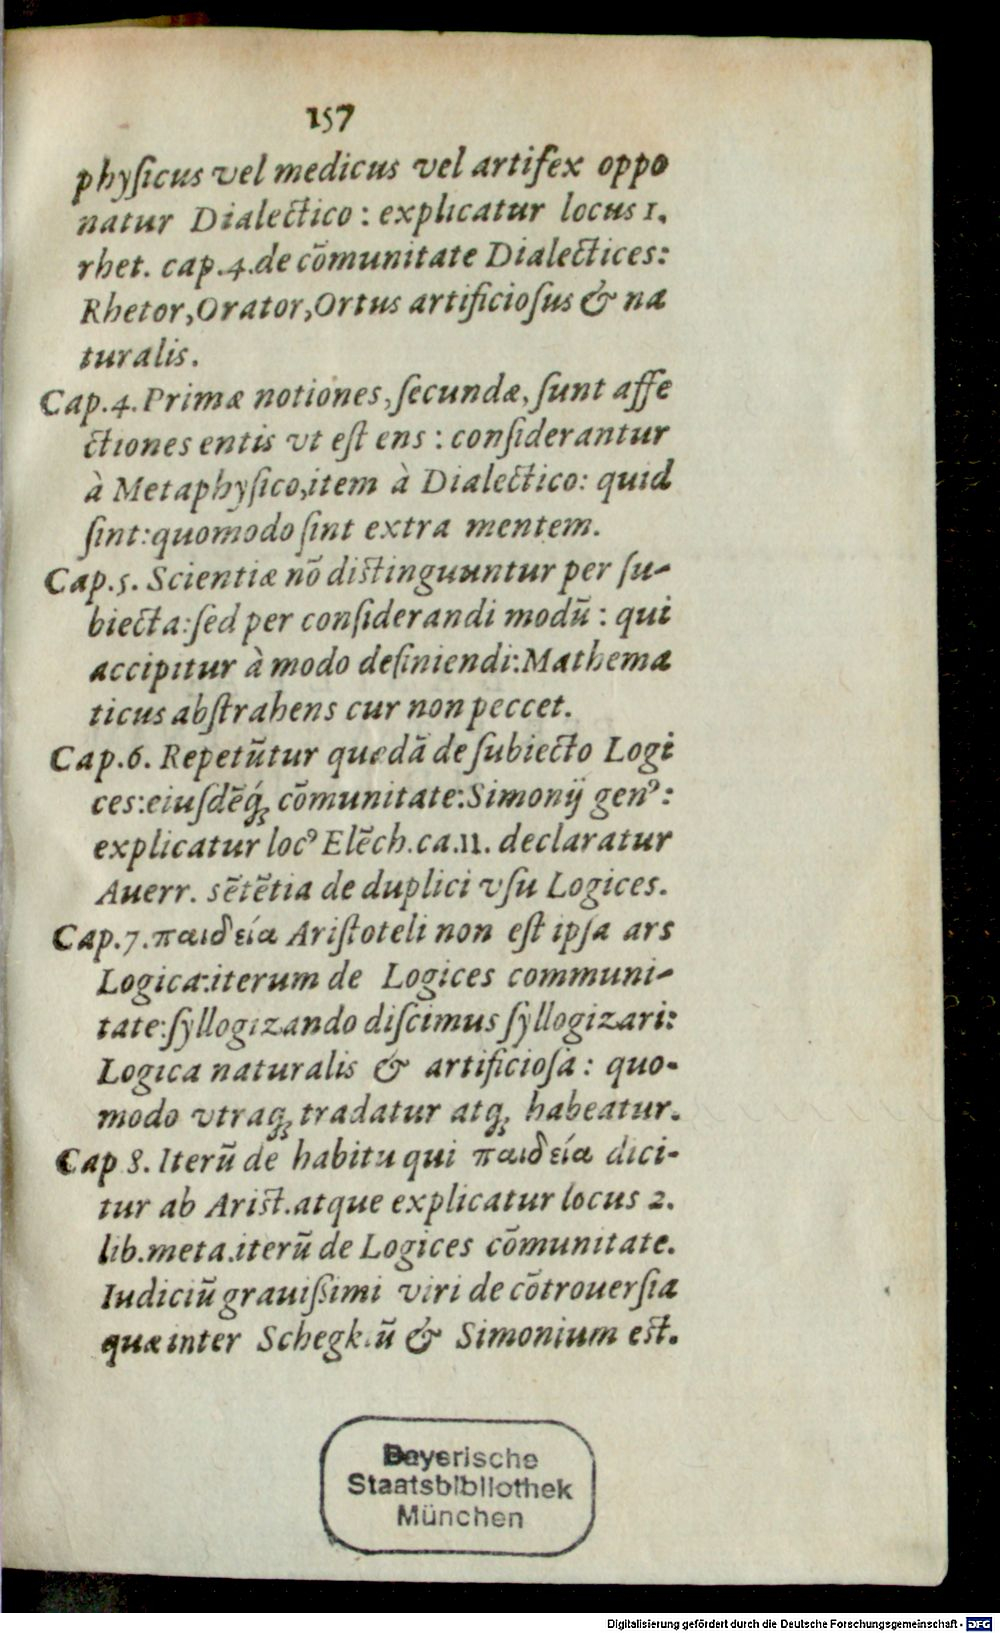 157
phyſicus vel medicus vel artifex oppo
natur Dialectico : explicatur locus 1.
rhet. cap.4.de cõmunitate Dialectices:
Rhetor,Orator,Ortus artificioſus & na
turalis.
Cap.4. Primæ notiones,ſecundæ, ſunt affe
ctiones entis vt eſt ens : conſiderantur
à Metaphyſico,item à Dialectico: quid
ſint:quomodo ſint extra mentem.
Cap.5. Scientiæ nõ distinguuntur per ſu-
biecta:ſed per conſiderandi modũ : qui
accipitur à modo definiendi:Mathema
ticus abſtrahens cur non peccet.
Cap.6. Repetũtur quædã de ſubiecto Logi
ces:eiuſdẽq́ꝫ cõmunitate:Simonij genꝰ:
explicatur locꝰ Elẽch.ca.11. declaratur
Auerr. sẽtẽtia de duplici vſu Logices.
Cap.7.παιδεία Ariſtoteli non eſt ipſa ars
Logica:iterum de Logices communi-
tate:ſyllogizando diſcimus ſyllogizari:
Logica naturalis & artificioſa : quo-
modo vtraqꝫ tradatur atqꝫ habeatur.
Cap 8. Iterũ de habitu qui παιδεία dici-
tur ab Arist.atque explicatur locus 2.
lib.meta.iterũ de Logices cõmunitate.
Iudiciũ grauiſsimi viri de cõtrouerſia
quæ inter Schegkiũ & Simonium est.
Bayerische
Staatsbibliothek
München
Digitalisierung gefördert durch die Deutsche Forschungsgemeinschaft - DFG